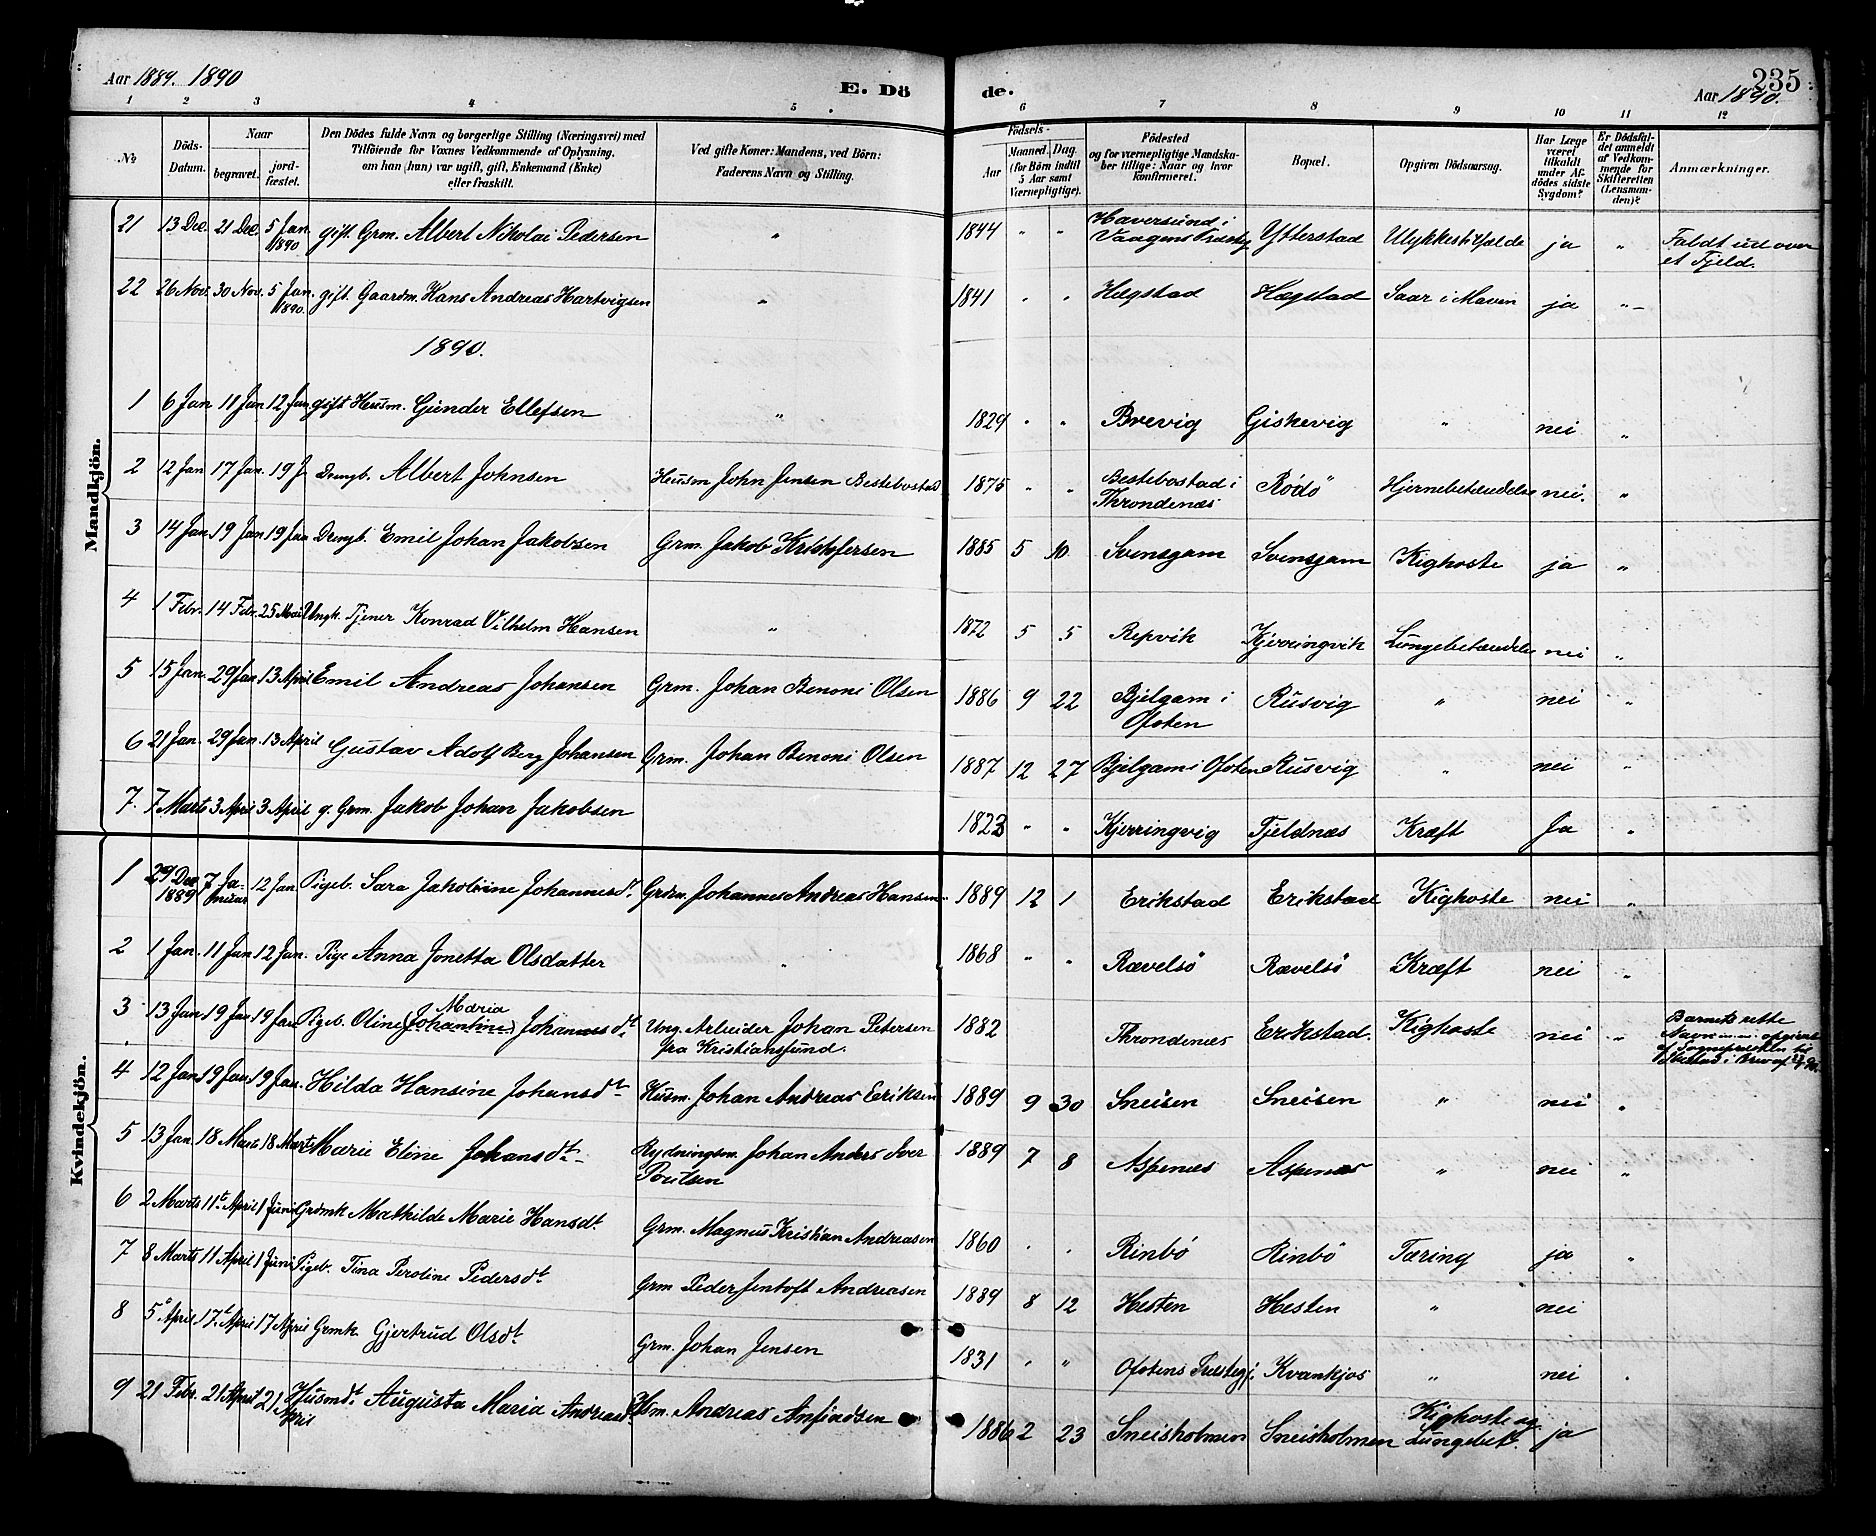 Aar 1889. 1890
E. Dö
de.
Aar 1890.
235
1 2 3 4 5 6 7 8 9 10 11 12
No
Döds-Datum.
Naar
begravet.
jordfæstet.
Den Dödes fulde Navn og borgerlige Stilling (Næringsvei) med
Tilföiende for Voxnes Vedkommende af Oplysning.
om han (hun) var ugift, gift, Enkemand (Enke)
eller fraskilt.
Ved gifte Koner: Mandens, ved Börn:
Faderens Navn og Stilling.
Födsels-
Aar
Maaned. Dag.
(for Börn indtil
5 Aar samt
Værnepligtige).
Födested
og for værnepligtige Mandska-
ber tillige: Naar og hvor
konfirmeret.
Bopæl.
Opgiven Dödsaarsag.
Har Læge
været
tilkaldt
under Af-
dödes sidste
Sygdom?
Er Dödsfal-
det anmeldt
af Vedkom-
mende for
Skifteretten
(Lensman-
den)?
Anmærkninger.
Mandkjön.
21 13 Dec. 21 Dec. 5 Jan. 1890 gift. Grm. Albert Nikolai Pedersen " 1844 " " Haversund i Vaagens Præsteg Ytterstad Ulykkestilfælde ja " Faldt ud over et Fjeld.
22 26 Nov. 30 Nov. 5 Jan. 1890. gift. Gaardm. Hans Andreas Hartvigsen " 1841 " " Hægstad Hægstad Saar i Maven ja "
1890.
1 6 Jan 11 Jan 12 Jan gift Husm. Günder Ellefsen " 1829 " " Brevig Giskevig " nei "
2 12 Jan 17 Jan. 19 J Drengb. Albert Johnsen Husm John Jensen Bestebostad 1875 " " Bestebostad i Throndenæs Rödö Hjernebetændelse nei. "
3 14 Jan 19 Jan 19 Jan Drengb. Emil Johan Jakobsen Grm. Jakob Kristofersen 1885 5 10 Svensgam Svensgam Kighoste ja "
4 1 Febr. 14 Febr. 25 Mai Ungk. Tjener Konrad Vilhelm Hansen " 1872 5 5 Repvik Kjerringvik Lungebetændelse nei "
5 15 Jan. 29 Jan. 13 April Emil Andreas Johansen Grm. Johan Benoni Olsen 1886 9 22 Bjelgam i Ofoten Rusvig " nei "
6 21 Jan. 29 Jan. 13 April Gustav Adolf Berg Johansen Grm. Johan Benoni Olsen 1887 12 27 Bjelgam i Ofoten Rusvig " nei "
7. 7 Marts 3 April 3 April g. Grm. Jakob Johan Jakobsen 1823 " " Kjerringvig Fjeldnæs Kræft Ja "
Kvindekjön.
1 29 Dec 1889 7 Januar 12 Jan Pigeb. Sara Jakobine Johannesdt. Grdm. Johannes Andreas Hansen 1889 12 1 Erikstad Erikstad Kighoste nei "
2 1 Jan. 11 Jan 12 Jan. Pige Anna Jonetta Olsdatter " 1868 " " Rævelsö Rævelsö Kræft nei "
3 13 Jan 19 Jan 19 Jan Pigeb. Oline (Johantine) Maria Johannesdt. Ung. Arbeider Johan Petersen fra Kristiansund. 1882 Throndenæs Erikstad. Kighoste nei " Barnets rette Navn opgivet af Sognepræsten til i Brev af
4 12 Jan 19 Jan 19 Jan. Hilda Hansine Johansdt. Husm. Johan Andreas Eriksen 1889 9 30 Sneisen Sneisen " nei "
5 13 Jan. 18 Marts 18 Marts Marie Eline Johansdt. Rydningsm. Johan Anders Iver Poulsen 1889 7 8 Aspenæs Aspenæs " nei "
6 2 Marts 11t April 1 Juni Grdmk Mathilde Marie Hansdt. Grm. Magnus Kristian Andreasen 1860 " " Rinbö Rinbö Tæring ja "
7 8 Marts 11 April 1 Juni Pigeb. Tina Peroline Pedersdt. Grm Peder Jentoft Andreasen 1889 8 12 Hesten Hesten " nei
8 5 April 17t April 17 April Grmk. Gjertrud Olsdt. Grm. Johan Jensen 1831 " " Ofotens Præstegj. Kvankjos " nei "
9 21 Febr. 21 April 21 April Husmdt. Augusta Maria Andreasdt Hsm. Andreas Anfindsen 1886 2 23 Sneisholmen Sneisholmen Kighoste og Lungebet. ja